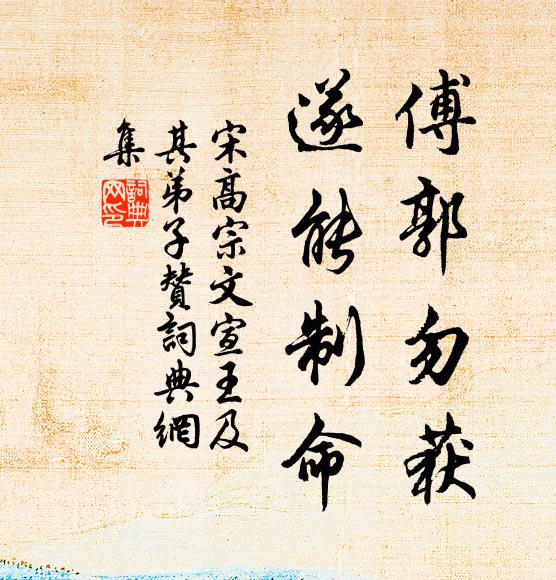 傅郭勿获
遂能制命
宋高宗文宣王及
其弟子赞词典网
集
词典
网印